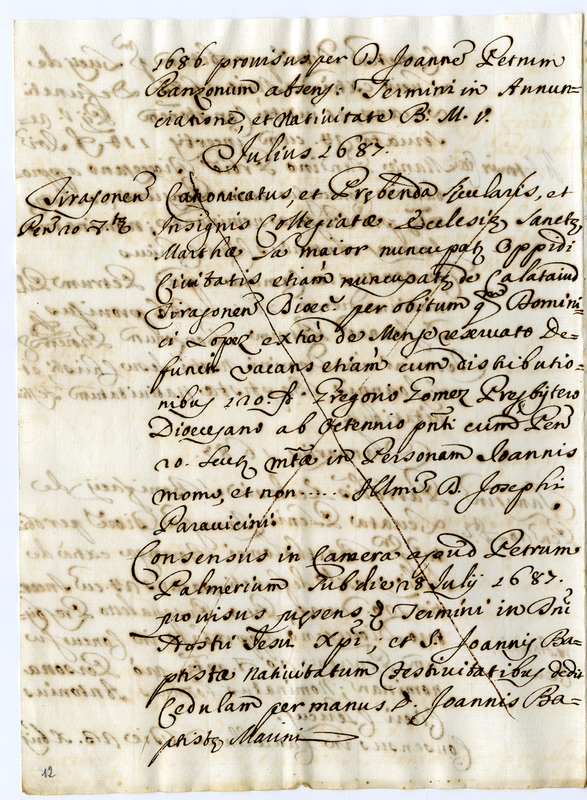 1686 provisus per D. Joannē Petrum
Ranzonum absens: Termini in Annun=
ciatione, et Nativitate B. M. V.
Julius 1687.
Tirasonen̄ Canonicatus, et Prębenda sęcularis, et
Pen̄ 20 Insignis Collegiatæ Ecclesię Sanctę
Marthæ la maior nuncupatę Oppidi
Civitatis etiam nuncupatę de Calataiud
Tirasonen̄ Diœc: per obitum qm̄ Domini=
ci Lopez extrā de Mense reservato De=
functi vacans etiam cum distributio=
nibus 120 Gregorio Gomez Presbytero
Diœcesano ab Octennio pn̄ti cum Pen̄
20. Scut in Personam Joannis
momo, et non ..... Illm̄i D. Josephi
Paravicini.
Consensus in Camera apud Petrum
Palmerium sub die 28 July 1687.
provisus Termini in Dn̄i
Nostri Jesu Xpi; et S. Joannis Ba=
ptistæ Nativitatum festivitatibus dedit
Cedulam per manus D. Joannis Ba=
ptistę Marini
12